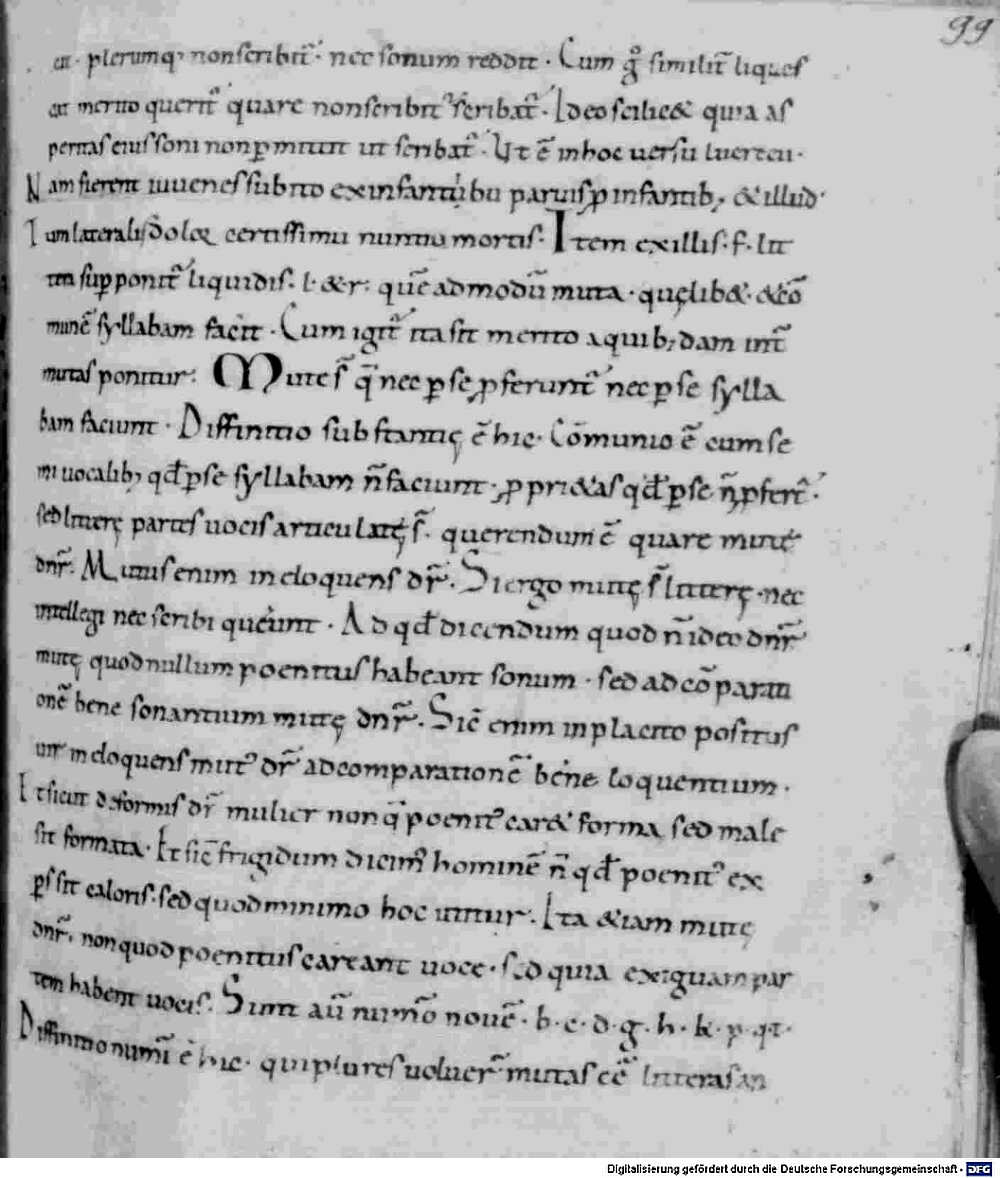 99
cit · plerumq; non scribit᷑ · nec sonum reddit · Cum g° similit᷑ liques
cit merito querit᷑ quare non scribit᷑ l scribat᷑ · Ideo scilic& quia as
peritas eius soni non ꝑmittit ut scribat᷑ · Ut ē in hoc uersu
Nam fierent iuuenes subito ex infantibu paruis ꝓ infantib; & illud ·
Tum laterali dolor certissimu nuntiu mortis · Item ex illis · f · lit
tera suꝑponit᷑ liquidis · l · & r · quē ad modū muta · quęlib& · & cō
munē syllabam facit · Cum igit᷑ ita sit merito a quib;dam int᷑
mutas ponitur · Mute s̄ q̄ nec ꝑ se ꝓferunt᷑ nec ꝑ se sylla
bam faciunt · Diffinitio substantię ē hic · Cōmunio ē cum se
miuocalib; qđ ꝑ se syllabam n̄ faciunt · ꝓpri&as qđ ꝑ se n̄ ꝓfert᷑ ·
sed litterę partes uocis articulatę s̄ · querendum ē quare mutę
dnr̄ · Mutus enim ineloquens dr̄ · Si ergo mutę s̄ litterę · nec
intellegi nec scribi queunt · Ad qđ dicendum quod n̄ ideo dnr̄
mutę quod nullum poenitus habeant sonum · sed ad cōparati
onē bene sonantium mutę dnr̄ · Sic̄ enim in placito positus
uir ineloquens mut᷒ dr̄ ad comparationē bene loquentium ·
Et sicut deformis dr̄ mulier non q̄ poenit᷒ care& forma sed male
sit formata · Et sic̄ frigidum dicim᷒ hominē n̄ qđ poenit᷒ ex
ꝑs sit caloris · sed quod minimo hoc utitur · Ita &iam mutę
dnr̄ · non quod poenitus careant uoce · sed quia exiguam par
tem habent uocis · Sunt aū numō nouē · b · c · d · g · h · k · p · q · t ·
Diffinitio numi ē hic · qui plures uoluer̄ mutas eē litteras an
Digitalisierung gefördert durch die Deutsche Forschungsgemeinschaft - DFG